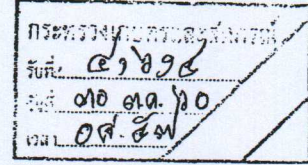 กระทรวงเกษตรและสหกรณ์
รับที่
วันที่ ๓๐ ต.ค. ๖๐
เวลา ๐๙.๕๗